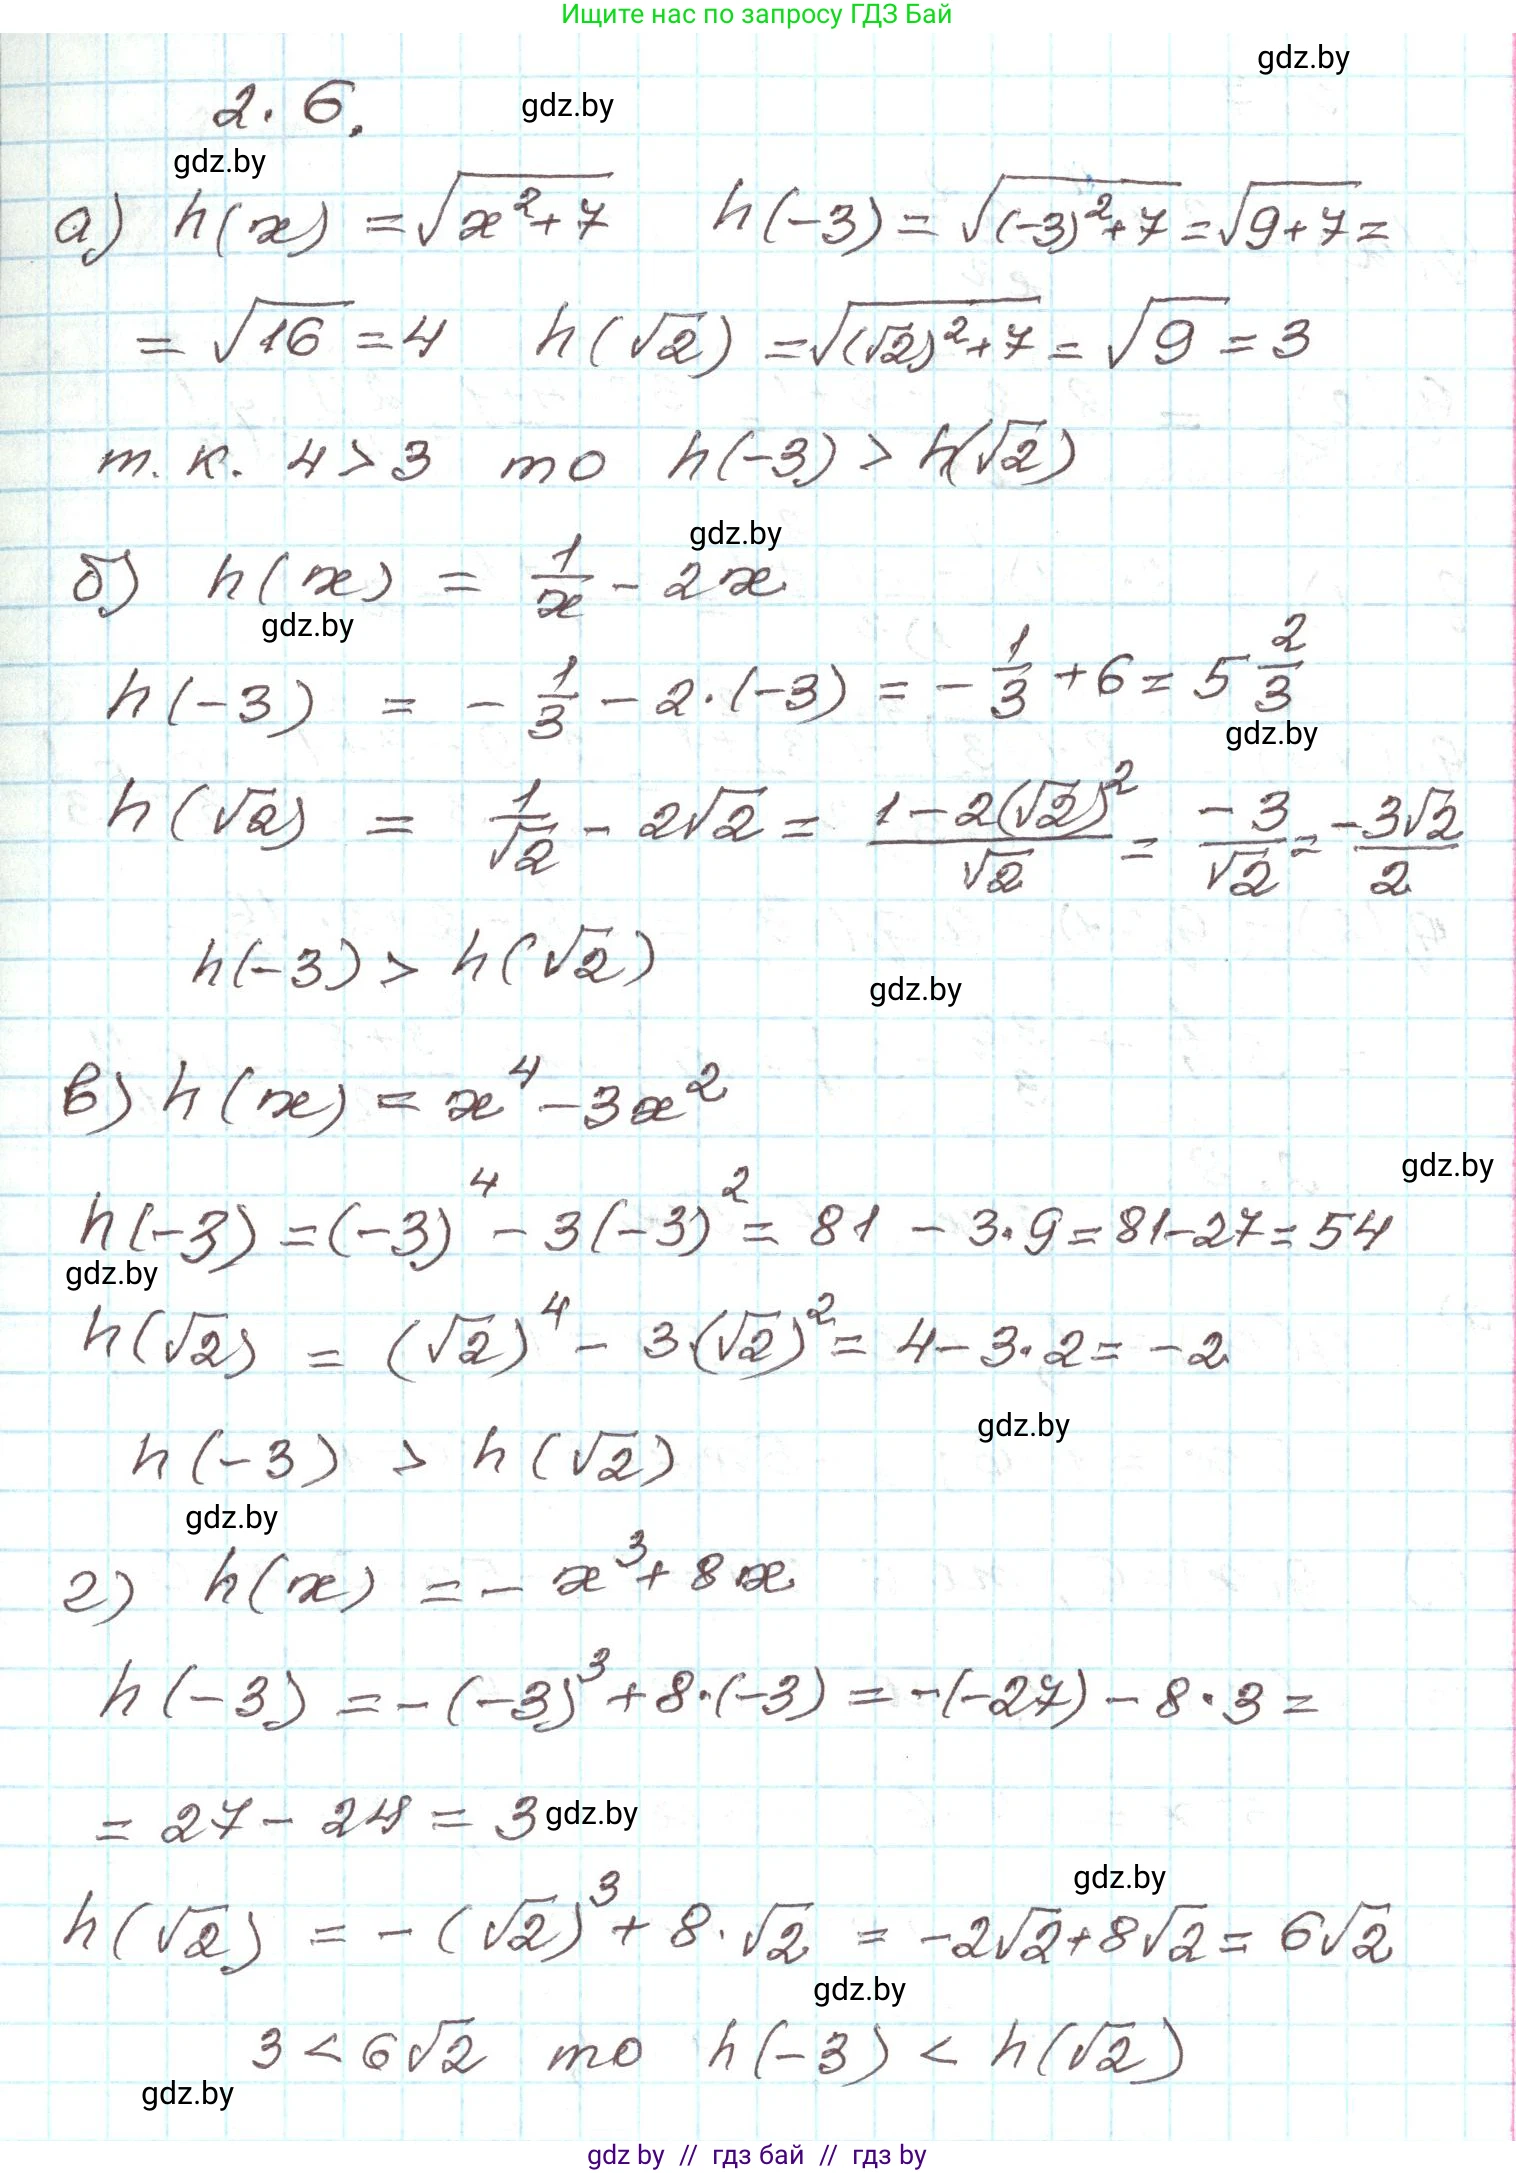 Ищите нас по запросу ГДЗ Бай
gdz.by
2.6.
gdz.by
gdz.by
а) h(x) = √(x²+7) h(-3) = √((-3)²+7) = √(9+7) =
= √16 = 4 h(√2) = √((√2)²+7) = √9 = 3
т.к. 4>3 то h(-3) > h(√2)
gdz.by
б) h(x) = 1/x - 2x
gdz.by
h(-3) = -1/3 - 2·(-3) = -1/3 + 6 = 5 2/3
gdz.by
h(√2) = 1/√2 - 2√2 = (1-2(√2)²)/√2 = -3/√2 = -3√2/2
h(-3) > h(√2)
gdz.by
в) h(x) = x⁴ - 3x²
gdz.by
h(-3) = (-3)⁴ - 3(-3)² = 81 - 3·9 = 81-27 = 54
gdz.by
h(√2) = (√2)⁴ - 3·(√2)² = 4 - 3·2 = -2
gdz.by
h(-3) > h(√2)
gdz.by
г) h(x) = -x³ + 8x
h(-3) = -(-3)³ + 8·(-3) = -(-27) - 8·3 =
= 27 - 24 = 3 gdz.by
gdz.by
h(√2) = -(√2)³ + 8·√2 = -2√2+8√2 = 6√2
gdz.by
3 < 6√2 то h(-3) < h(√2)
gdz.by
gdz by // гдз бай // гдз by